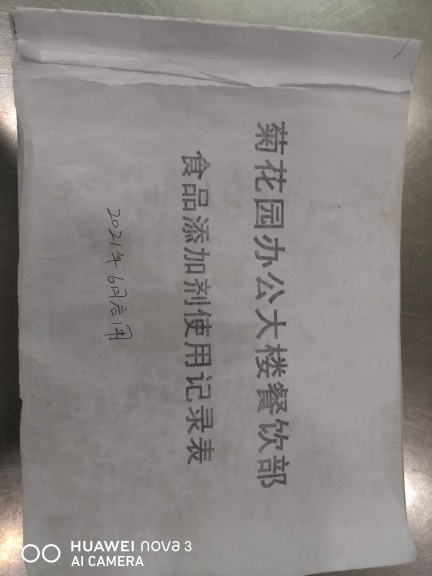 菊花园办公大楼餐饮部
食品添加剂使用记录表
2021年6月启用
HUAWEI nova 3
AI CAMERA